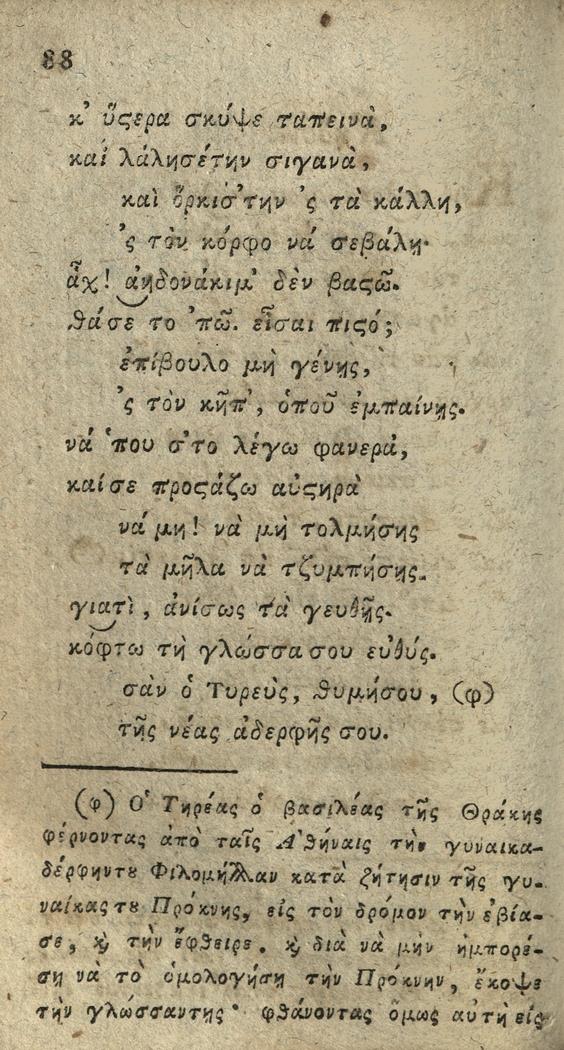 88
κ' ὕϛερα σκύψε ταπεινὰ,
καί λάλησέτην σιγανὰ,
καὶ ὅρκισ'την 'ς τὰ κάλλη,
'ς τὸν κόρφο νά σεβάλη·
ἄχ! ἀηδονάκιμ' δὲν βαϛῶ.
θάσε το 'πῶ. εἶσαι πιϛό;
ἐπίβουλο μὴ γένῃς,
'ς τὸν κῆπ', ὁποῦ ἐμπαίνῃς.
νά 'που σ'το λέγω φανερὰ,
καίσε προϛάζω αὐϛηρὰ
νά μη! νὰ μὴ τολμήσῃς
τὰ μῆλα νὰ τζυμπήσῃς.
γιατὶ, ἀνίσως τὰ γευθῇς.
κόφτω τὴ γλώσσα σου εὐθύς.
σὰν ὁ Τυρεὺς, θυμήσου, (φ)
τῆς νέας ἀδερφῆς σου.
(φ) Ὁ Τηρέας ὁ βασιλέας τῆς Θράκης
φέρνοντας ἀπὸ ταῖς Ἀθήναις τὴν γυναικα-
δέρφηντȣ Φιλομήλλαν κατὰ ζήτησιν τῆς γυ-
ναίκας τȣ Πρόκνης, εἰς τὸν δρόμον τὴν ἐβία-
σε, ϗ τὴν ἔφθειρε. ϗ διὰ νὰ μὴν ἠμπορέ-
ση νὰ τὸ ὁμολογήσῃ τὴν Πρόκνην, ἔκοψε
τὴν γλώσσαντης· φθάνοντας ὅμως αὐτὴ εἰς